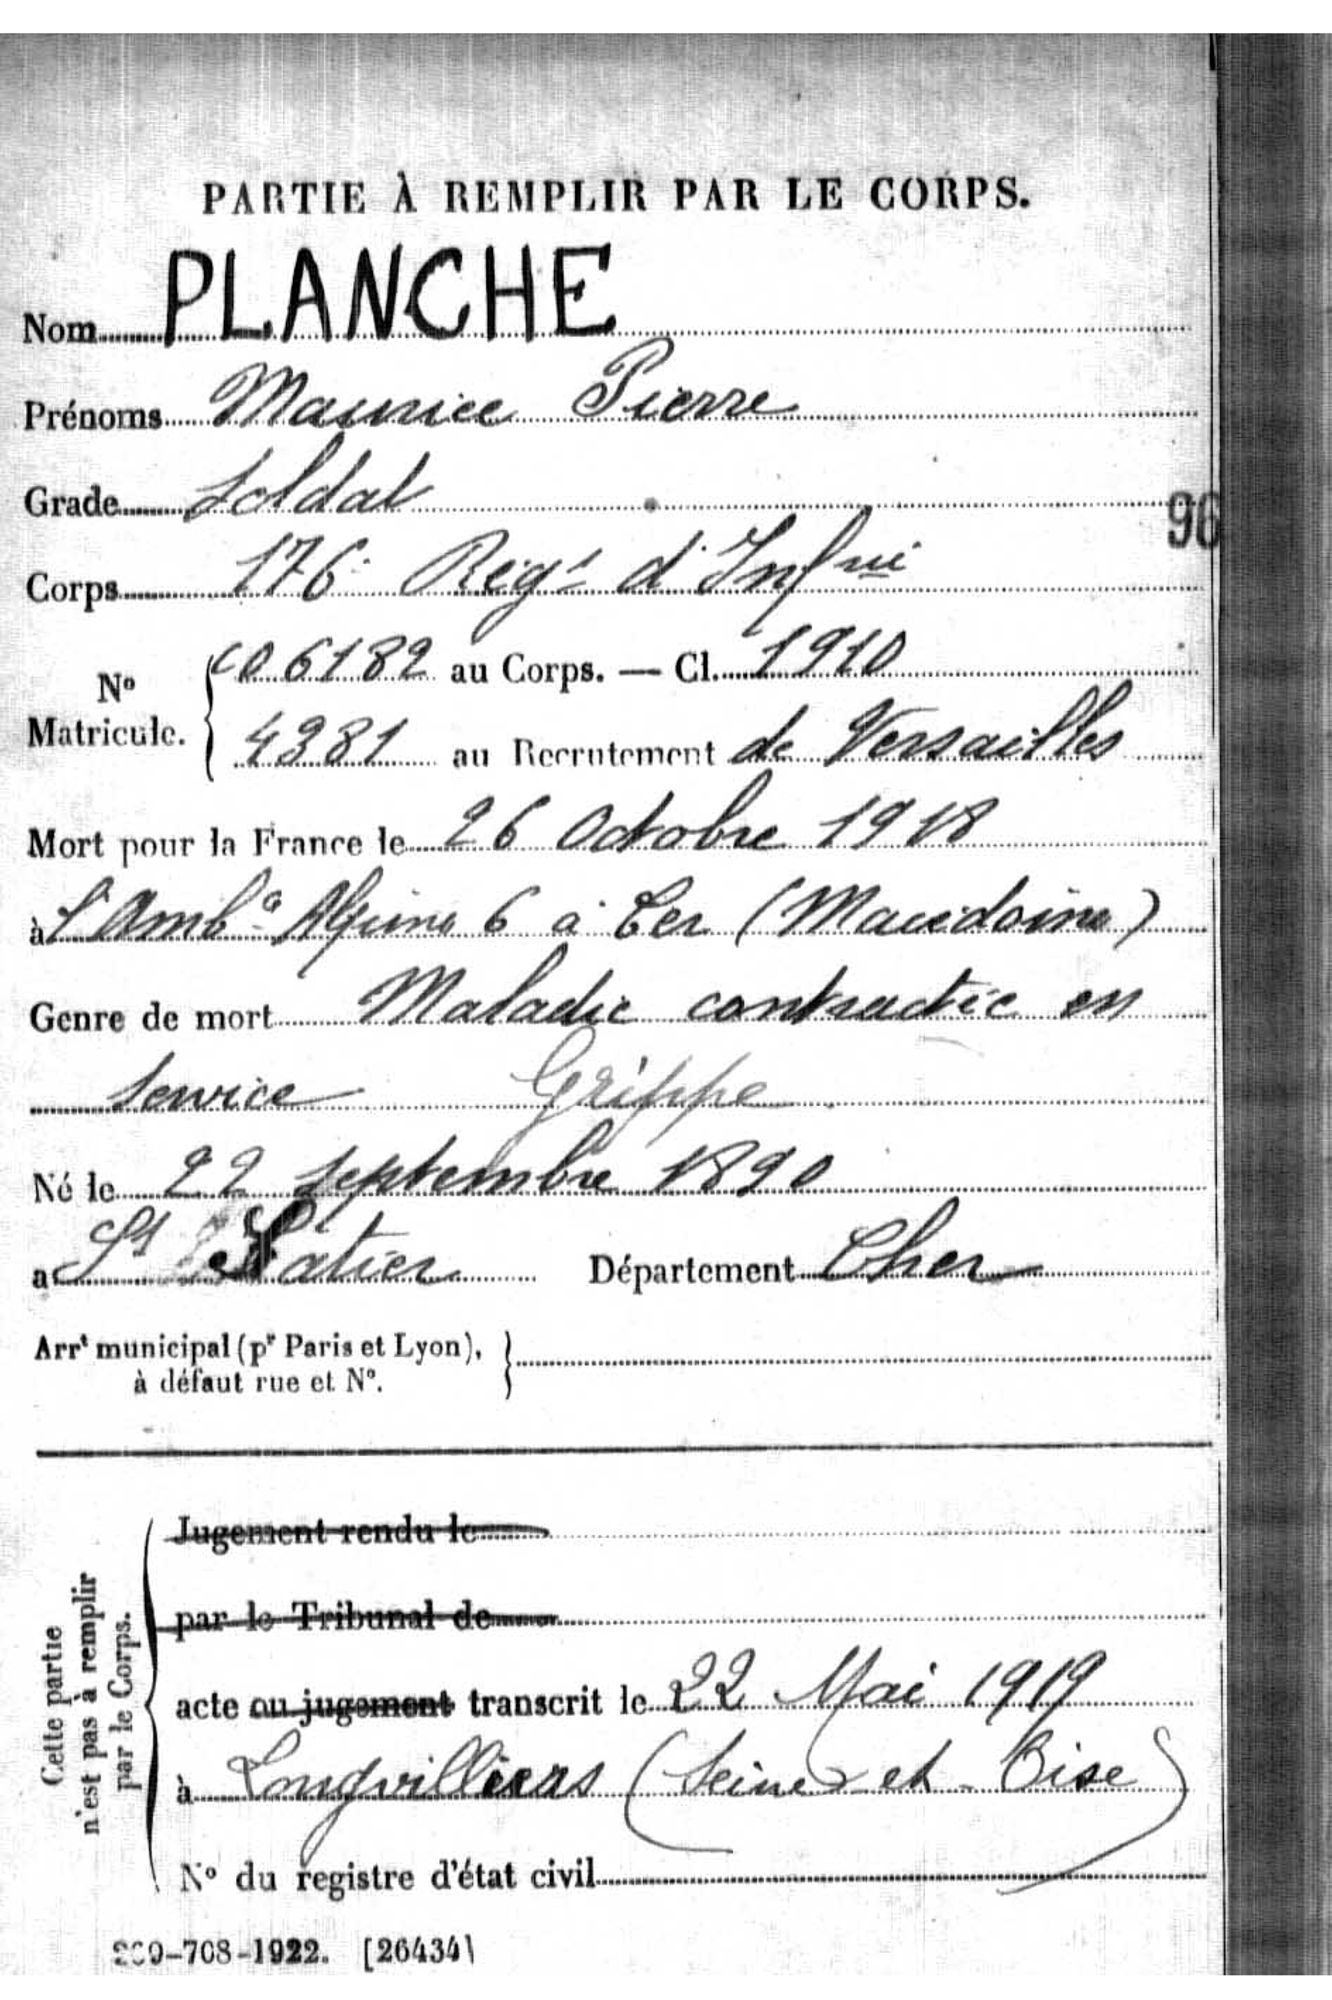 PARTIE À REMPLIR PAR LE CORPS.
Nom PLANCHE
Prénoms Maurice Pierre
Grade Soldat
96
Corps 176e Régt d'Infrie
N° Matricule. { 06182 au Corps. — Cl. 1910
4381 au Recrutement de Versailles
Mort pour la France le 26 Octobre 1918
à l'Ambce Alpine 6 à Cer (Macédoine)
Genre de mort Maladie contractée en
service Grippe
Né le 22 septembre 1890
à St Satier Département Cher
Arrt municipal (pr Paris et Lyon), }
à défaut rue et N°.
Cette partie n'est pas à remplir par le Corps.
Jugement rendu le
par le Tribunal de
acte ou jugement transcrit le 22 Mai 1919
à Longvilliers (Seine et Oise)
N° du registre d'état civil
-708-1922. [26434]